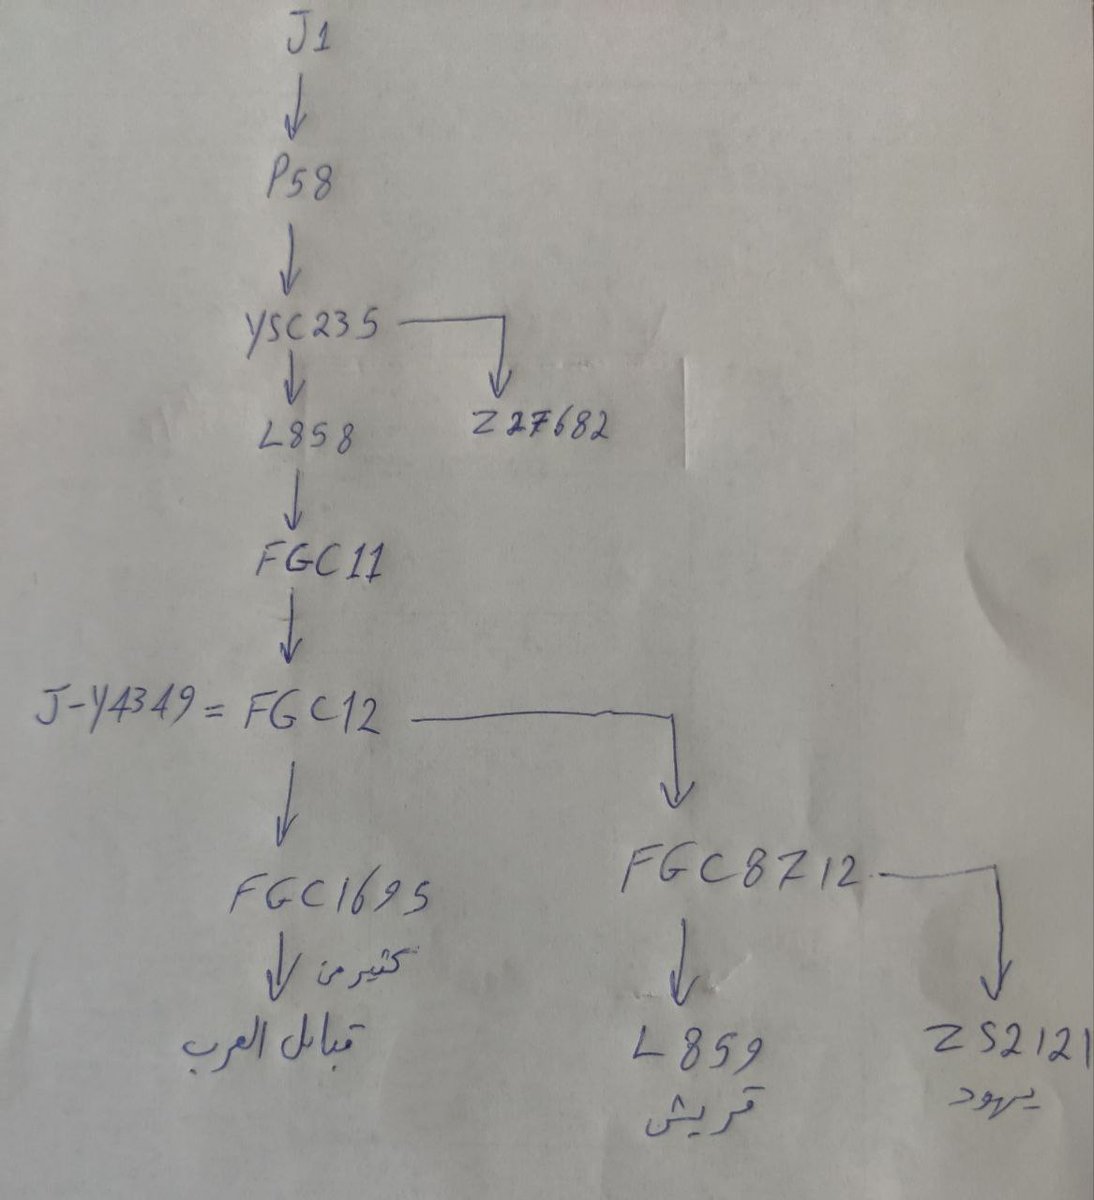 J1
P58
YSC235
L858
Z27682
FGC11
J-Y4349 = FGC12
FGC8712
FGC1695
كثير من
قبائل العرب
L859
ZS2121
قريش
يهود